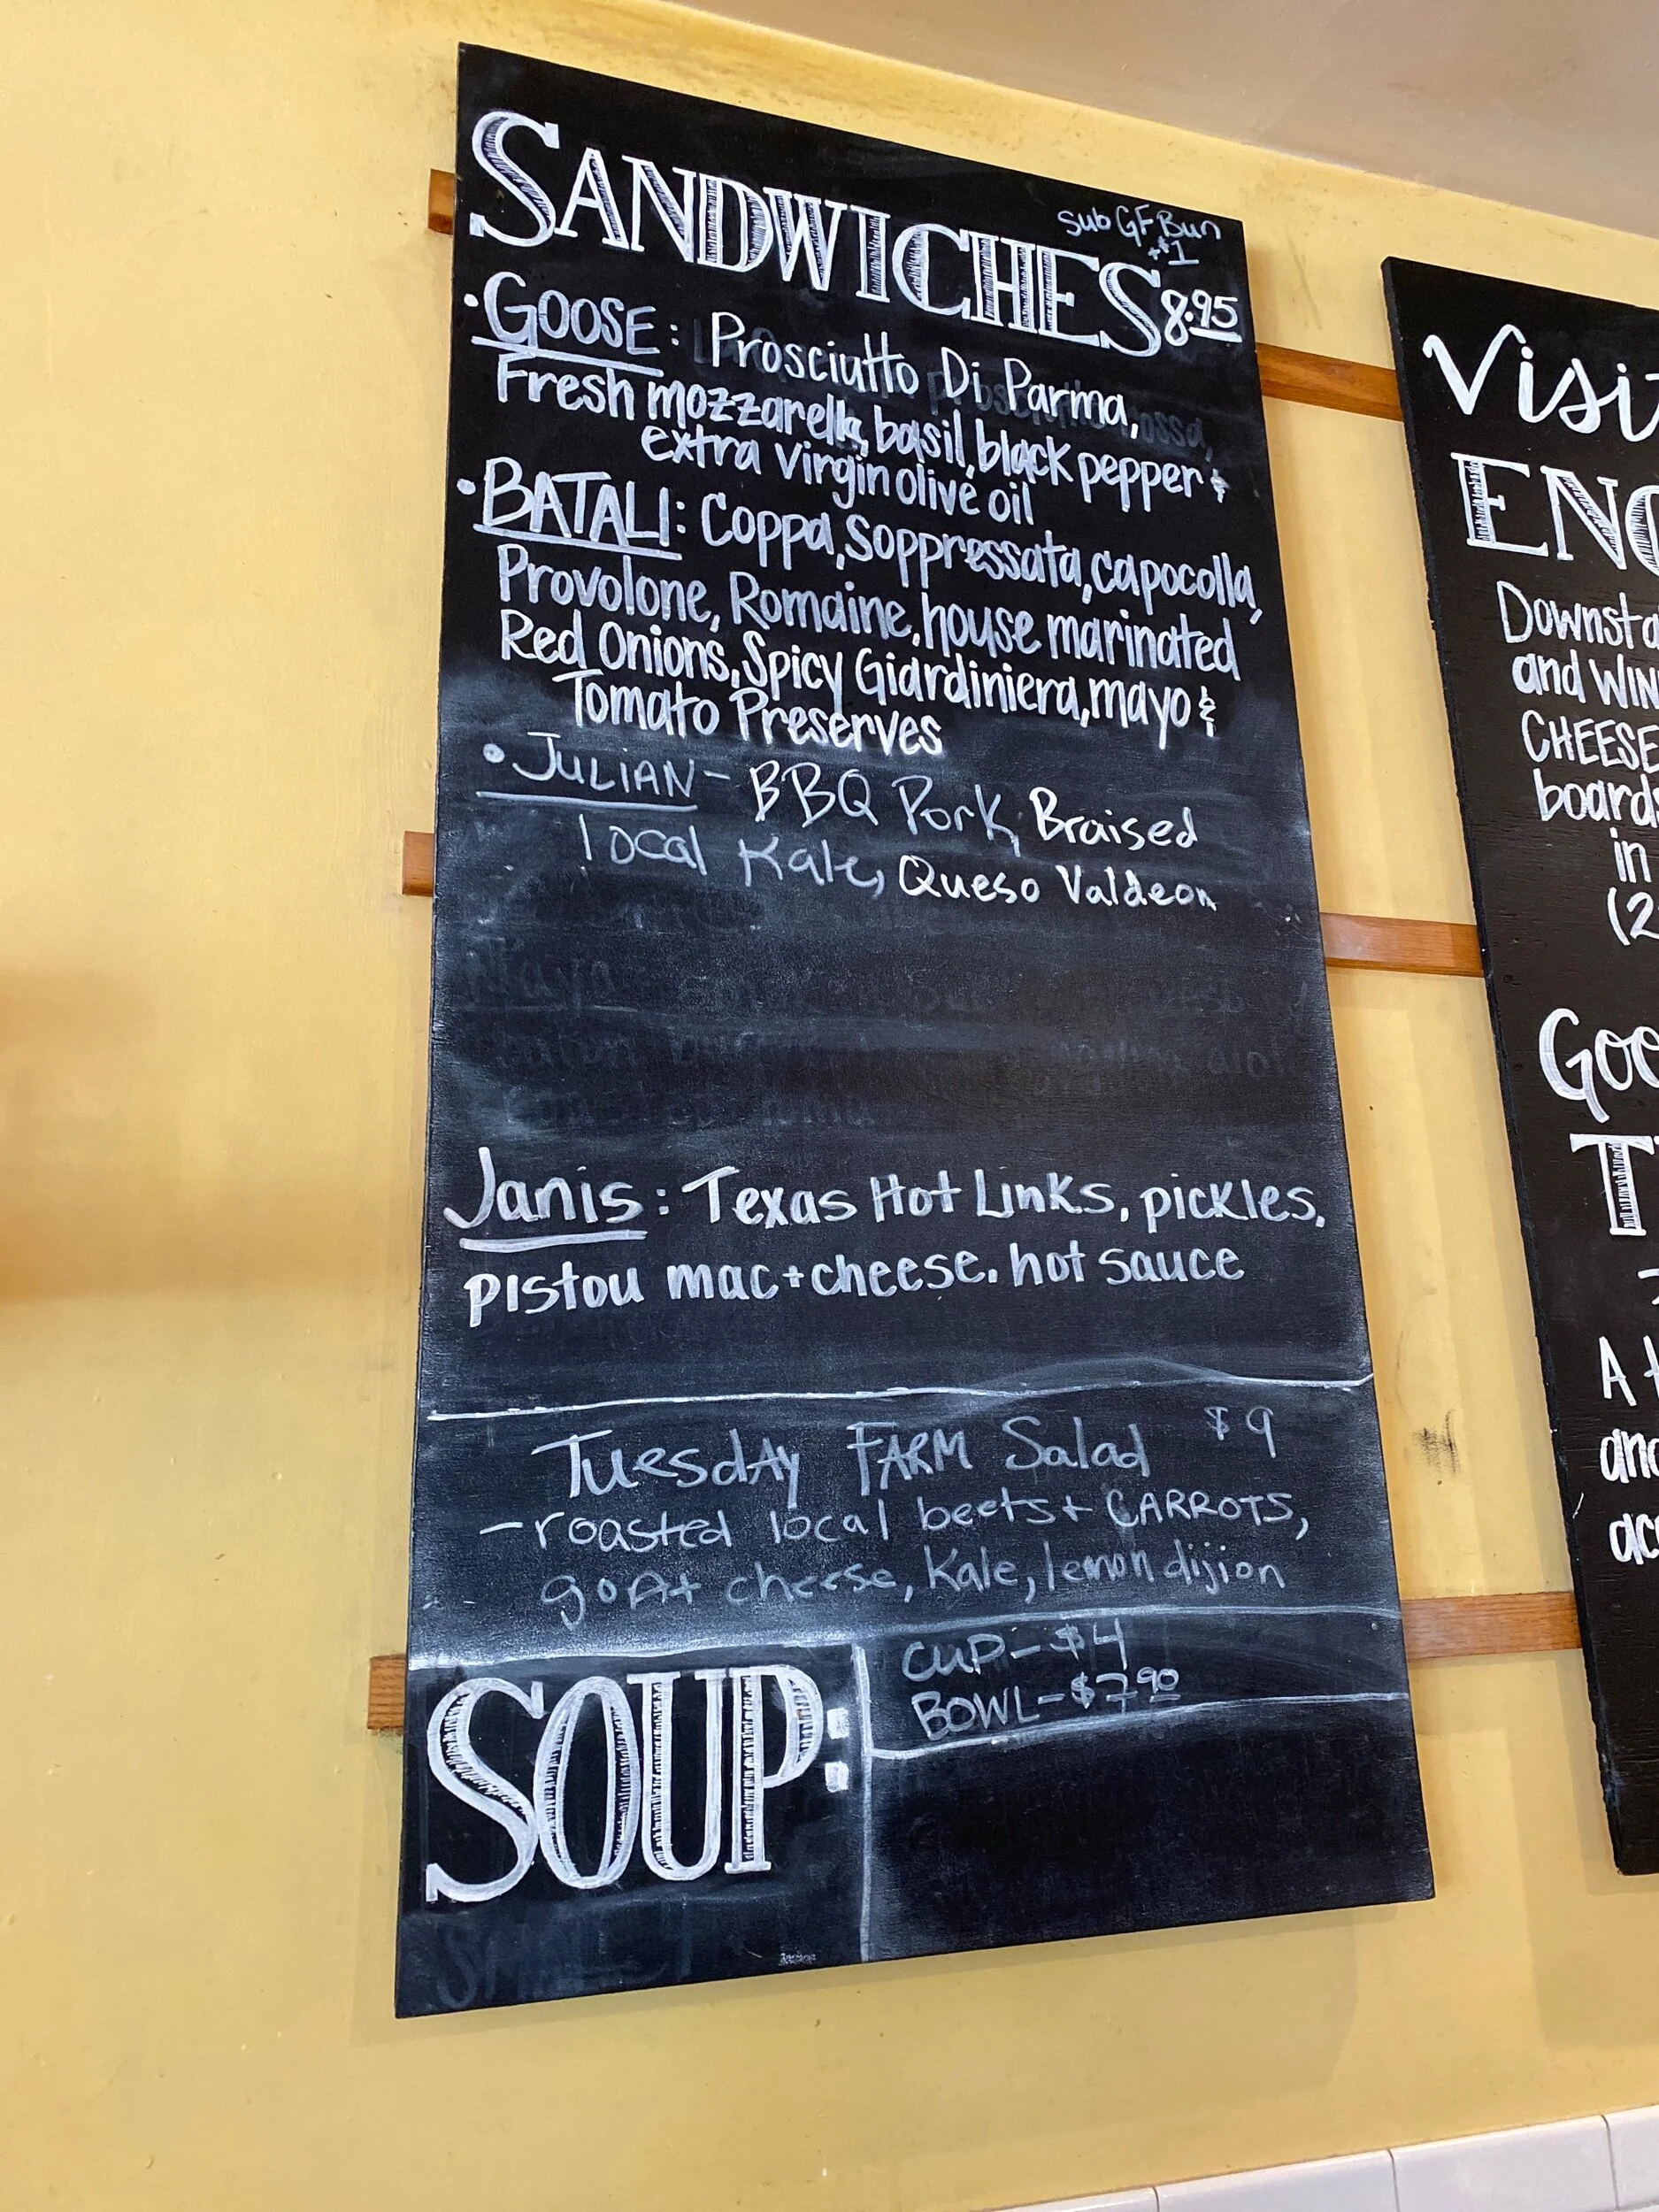 SANDWICHES
sub GF Bun
+$1
8.95
• GOOSE: Prosciutto Di Parma,
Fresh mozzarella, basil, black pepper &
extra virgin olive oil
• BATALI: Coppa, Soppressata, capocolla,
Provolone, Romaine, house marinated
Red Onions, Spicy Giardiniera, mayo &
Tomato Preserves
• JULIAN - BBQ Pork, Braised
local Kale, Queso Valdeon
Janis: Texas Hot Links, pickles,
pistou mac+cheese. hot sauce
Tuesday FARM Salad $9
- roasted local beets + CARROTS,
goat cheese, Kale, lemon dijion
SOUP:
CUP - $4
BOWL - $7.90
Visi
ENO
Downsta
and WIN
CHEESE
boards
in
(2
Goo
T
A t
and
acc